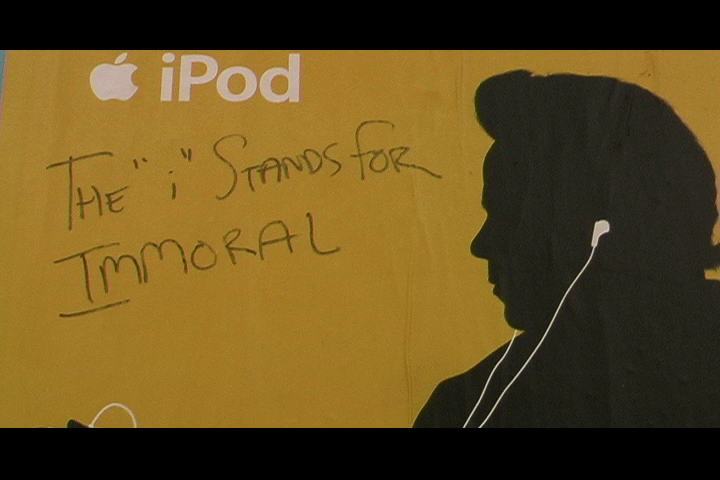 iPod
THE "i" STANDS FOR
IMMORAL